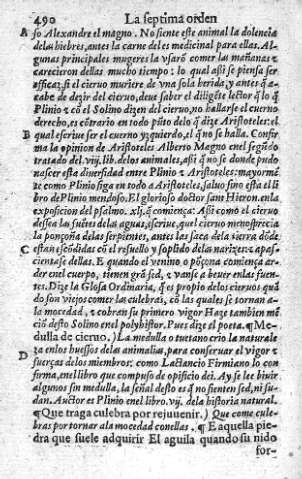 490 La septima orden
A so Alexandre el magno. No siente este animal la dolencia
de las fiebres, antes la carne del es medicinal para ellas. Al-
gunas principales mugeres la vsarõ comer las mañanas &
carecieron dellas mucho tiempo: lo qual assi se piensa ser
efficaz, si el ciervo muriere de vna sola herida, y antes q̃ a-
cabe de dezir del ciervo, deue saber el diligẽte lector q̃ lo q̃
Plinio & cõ el Solino dizen del ciervo, no hallarse el cuerno
derecho, es cõtrario en todo pũto delo q̃ dize Aristoteles: el
B qual escriue ser el cuerno yzquierdo, el q̃ no se halla. Confir
ma la opinion de Aristoteles Alberto Magno enel segũdo
tratado del. viij. lib. delos animales, assi q̃ no se donde pudo
nascer esta diversidad entre Plinio & Aristoteles: mayormẽ
te como Plinio siga en todo a Aristoteles, saluo sino esta el li
bro de Plinio mendoso. El glorioso doctor sant Hieron. enla
exposicion del psalmo. xlj. q̃ comiença: Assi como el ciervo
dessea las fuẽtes delas aguas, escriue, quel ciervo menosprecia
la ponçoña delas serpientes, antes las saca dela tierra dõde
C estan escõdidas cõ el resuello y soplido delas narizes & apas-
cientase dellas. E quando el venino o põçoña comiença ar-
der enel cuerpo, tienen grã sed, & vanse a beuer enlas fuen-
tes. Dize la Glosa Ordinaria, q̃ es propio delos ciervos quã
do son viejos comer las culebras, cõ las quales se tornan a-
la mocedad, & cobran su primero vigor Haze tambien mẽ
ciõ desto Solino enel polyhistor. Pues dize el poeta. ¶ Me-
dulla de ciervo.) La medulla o tuetano crio la naturale
D za enlos huessos delas animalias, para conseruar el vigor &
fuerças delos miembros: como Lactancio Firmiano lo con
firma, enel libro que compuso de opificio dei. Ay se lee biuir
algunos sin medulla, la señal desto es q̃ no sienten sed, ni su-
dan. Auctor es Plinio enel libro. vij. dela historia natural.
¶ Que traga culebra por rejuuenir.) Que come cule-
bras por tornar ala mocedad conellas. ¶ E aquella pie-
dra que suele adquirir El aguila quando su nido
for-